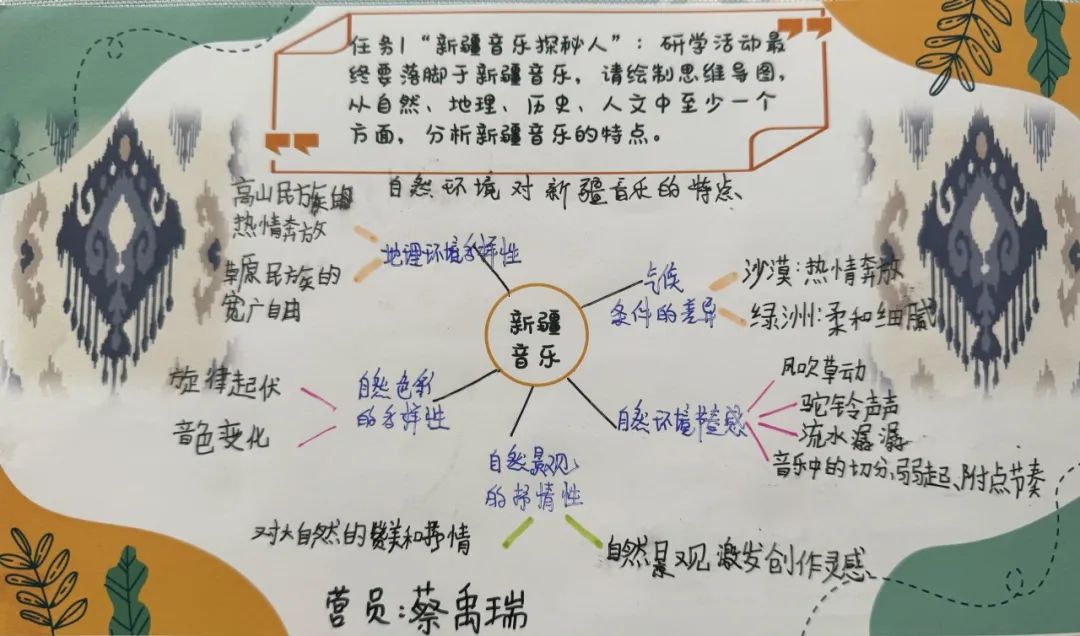 任务1“新疆音乐探秘人”：研学活动最
终要落脚于新疆音乐，请绘制思维导图，
从自然、地理、历史、人文中至少一个
方面，分析新疆音乐的特点。
自然环境对新疆音乐的特点
新疆
音乐
地理环境多样性
高山民族的
热情奔放
草原民族的
宽广自由
气候
条件的差异
沙漠：热情奔放
绿洲：柔和细腻
自然色彩
的多样性
旋律起伏
音色变化
自然环境节奏感
风吹草动
驼铃声声
流水潺潺
音乐中的切分、弱起、附点节奏
自然景观
的抒情性
对大自然的赞美和抒情
自然景观激发创作灵感
营员：蔡禹瑞